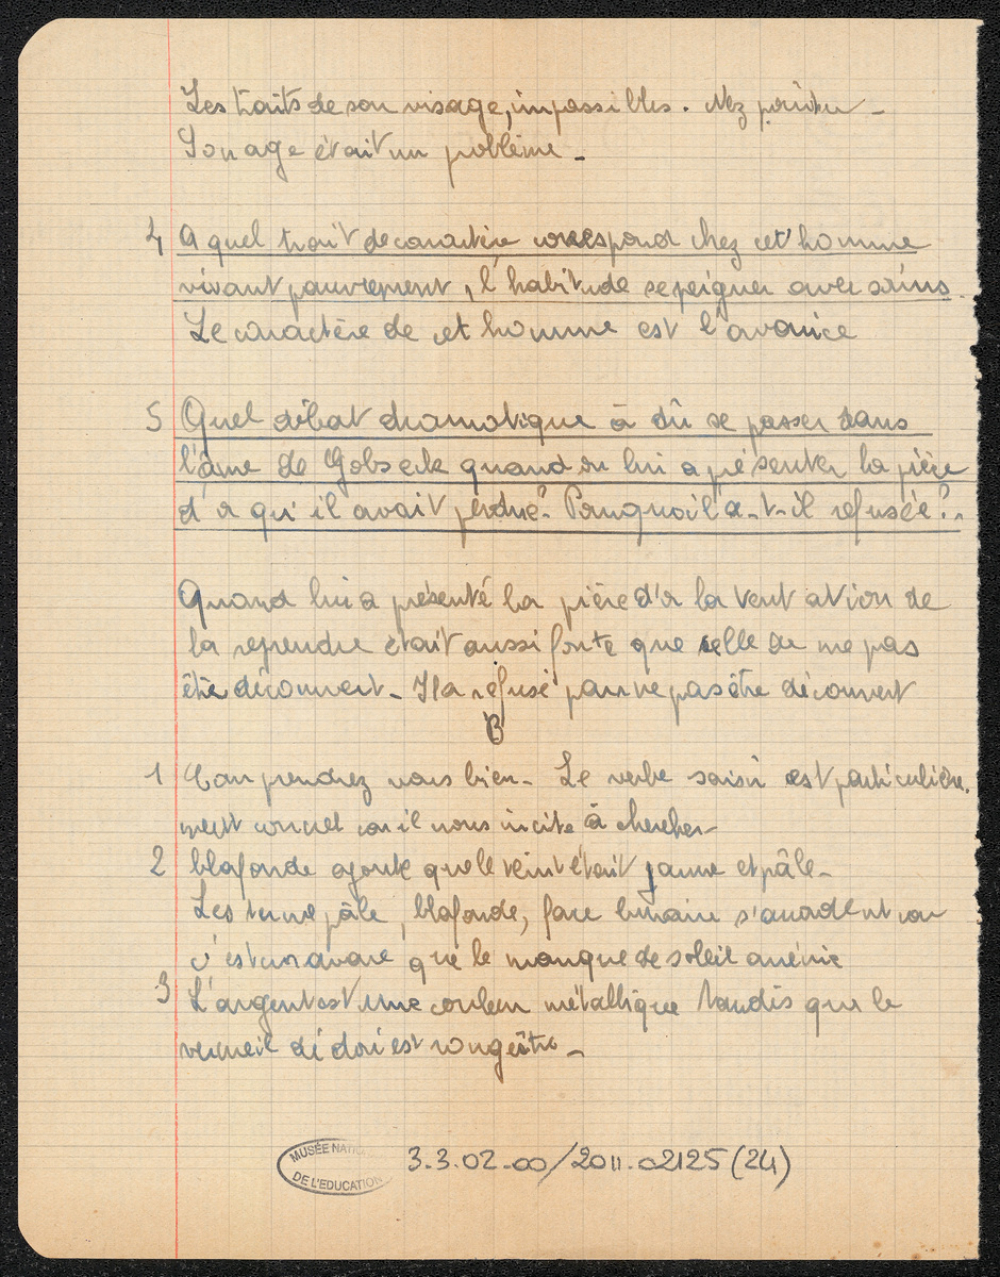 Les traits de son visage, impassibles. Nez pointu -
Son age était un problème -
4 A quel trait de caractère correspond chez cet homme
vivant pauvrement, l'habitude se peigner avec soins.
Le caractère de cet homme est l'avarice
5 Quel débat dramatique à dû se passer dans
l'âme de Gobseck quand on lui a présenter la pièce
d'or qu'il avait perdue? Pourquoi l'a-t-il refusée? -
Quand lui a présenté la pièce d'or la tentation de
la reprendre était aussi forte que celle de ne pas
être découvert - Il a refusé pour ne pas être découvert
B
1 Comprendrez vous bien - Le verbe saisir est particulière.
ment correct car il nous incite à chercher
2 blafarde ajoute que le teint était jaune et pâle -
Les terme pâle, blafarde, face lunaire s'accordent car
c'est un avare que le manque de soleil anémie
3 L'argent est une couleur métallique tandis que le
vermeil dédoré est rougeâtre -
MUSÉE NATI
DE L'EDUCATION
3.3.02.00/2011.02125(24)